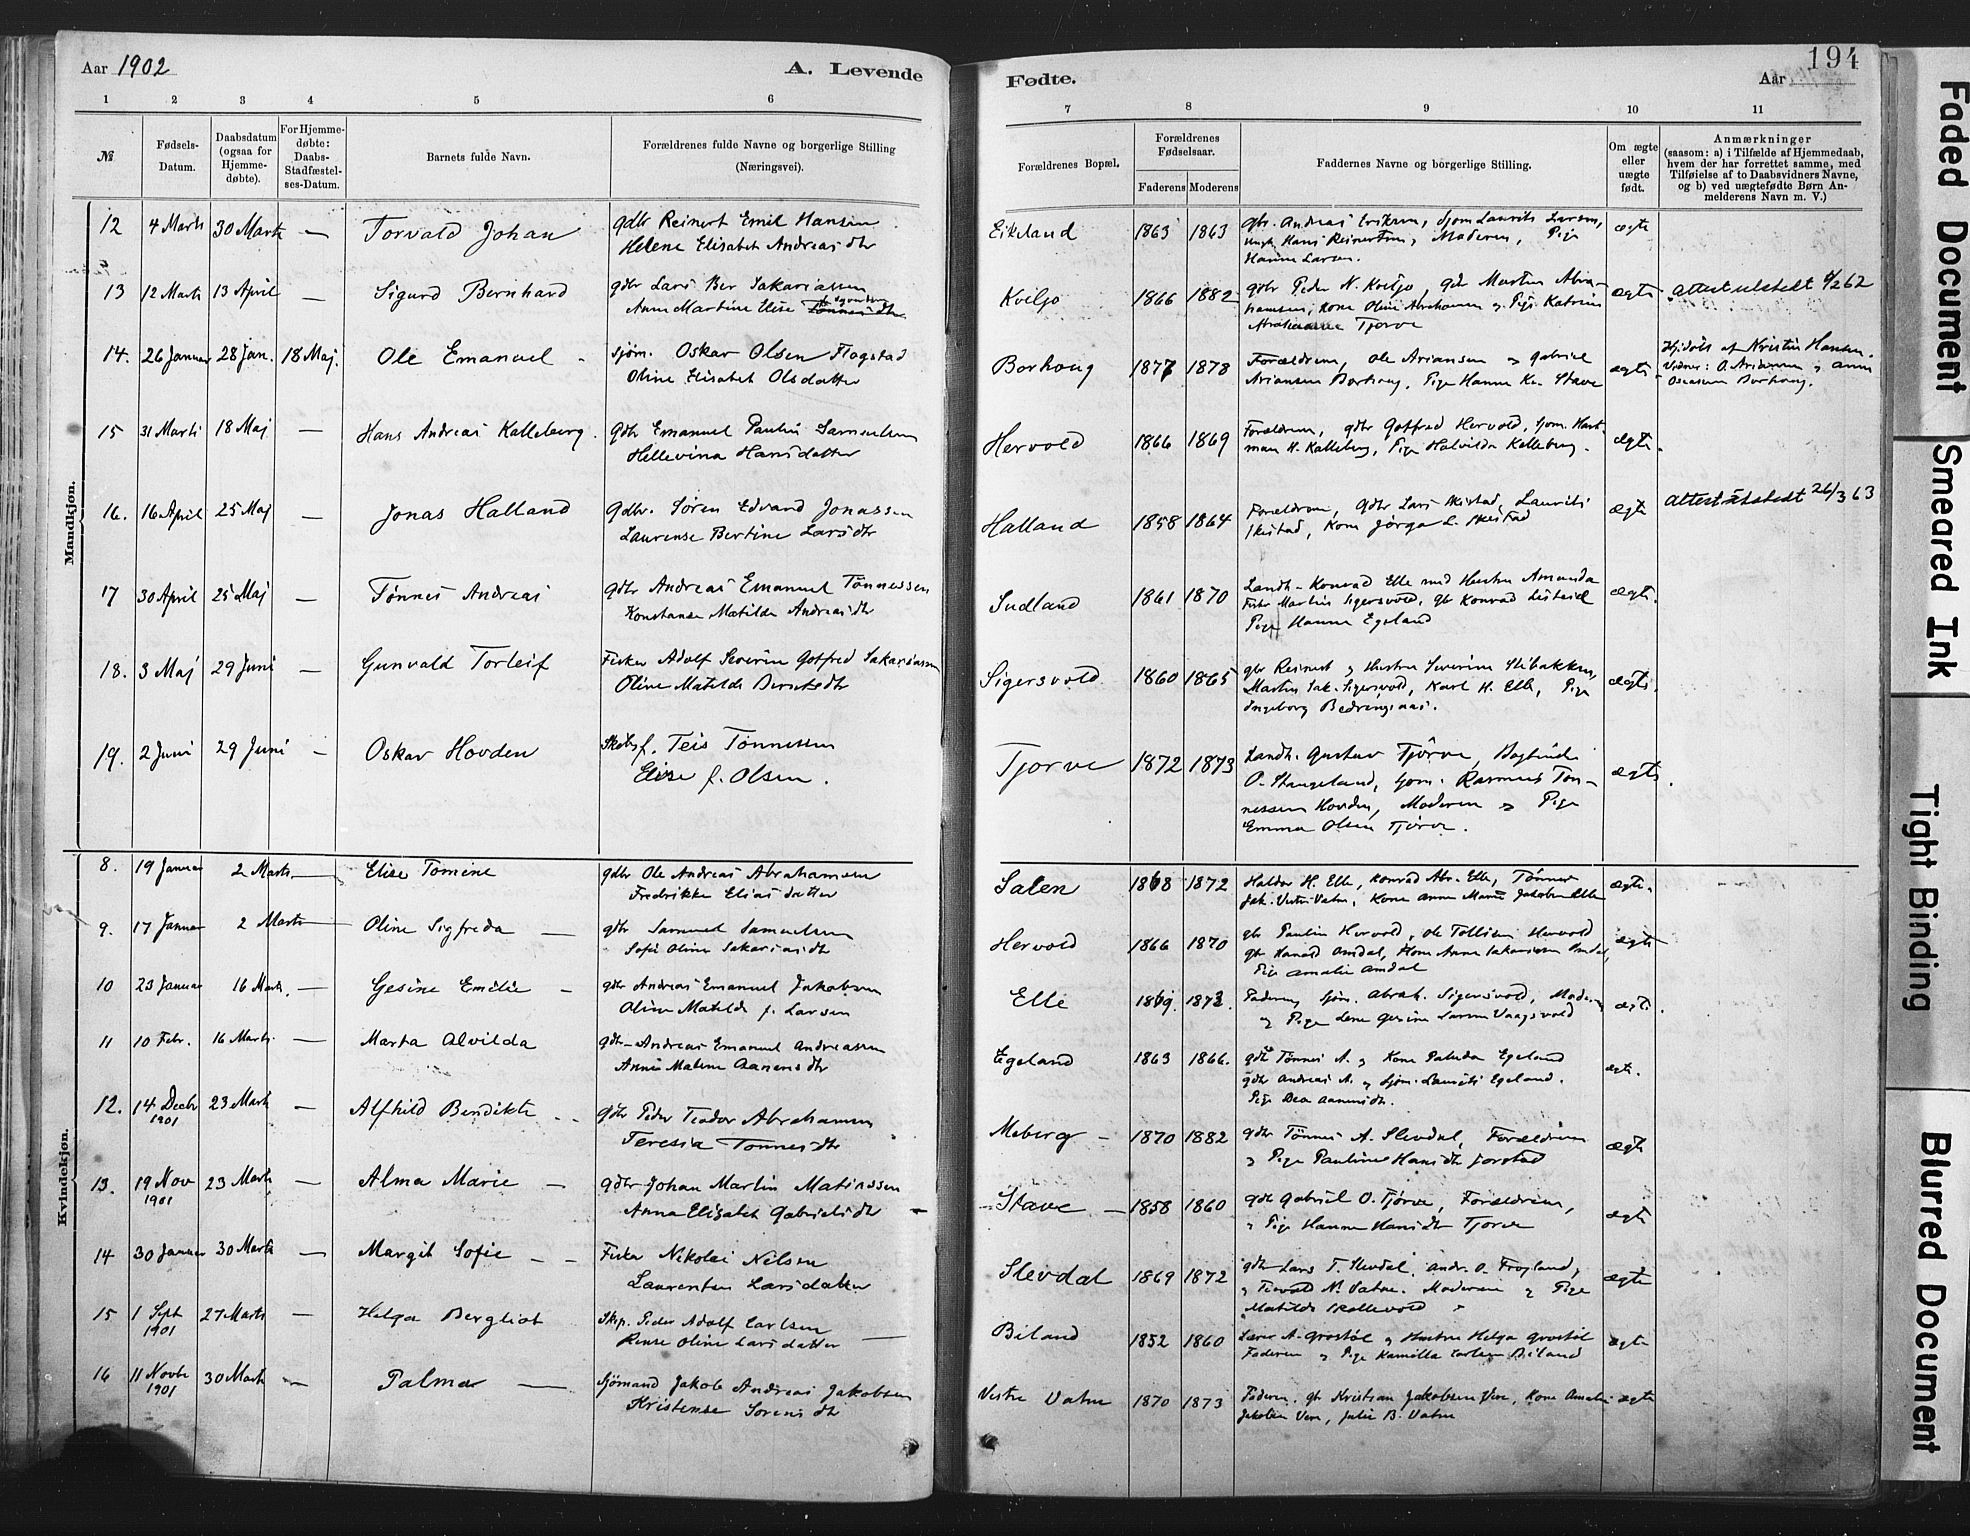 Aar 1902
A. Levende
Fødte.
194
Aar
1 2 3 4 5 6 7 8 9 10 11
№
Fødsels-
Datum.
Daabsdatum
(ogsaa for
Hjemme-
døbte).
For Hjemme-
døbte:
Daabs-
Stadfæstel-
ses-Datum.
Barnets fulde Navn.
Forældrenes fulde Navne og borgerlige Stilling
(Næringsvei).
Forældrenes Bopæl.
Forældrenes
Fødselsaar.
Faderens Moderens
Faddernes Navne og borgerlige Stilling.
Om ægte
eller
uægte
født.
Anmærkninger
(saasom: a) i Tilfælde af Hjemmedaab,
hvem der har forrettet samme, med
Tilføielse af to Daabsvidners Navne,
og b) ved uægtefødte Børn An-
melderens Navn m. V.)
Mandkjøn.
12 4 Marts 30 Marts — Torvald Johan
Gdbr Reinert Emil Hansen
Helene Elisabet Andreasdtr
Eikeland 1863 1863
gbr. Andreas Eriksen, Sjom Laurits Larsen,
Hans Reinertsen, Moderen, Pige
Hanne Larsen.
ægte
13 12 Marts 13 April — Sigurd Bernhard
gdbr Lars Ber Sakariassen
Anne Martine Elise Tønnesdtr
Kveljo 1866 1882
gdbr Peder N. Kveljo, gdr Martin Abra-
hamsen, Kone Oline Abrahamsen og Pige Katrine
Tjorve
ægte
attest utstedt 4/2 62
14. 26 Januar 28 Jan. 18 Maj. Ole Emanuel -
sjøm. Oskar Olsen Flagstad
Oline Elisabet Olsdatter
Borhoug 1877 1878
Forældrene, Ole Ariansen og Gabriel
Ariansen Borhoug, Pige Hanne Kr. Stave
ægte
Hjdøbt af Kristin Hansen.
Vidner: O. Ariansen og Anna
Borhoug.
15 31 Marts 18 Maj — Hans Andreas Kalleberg.
Gdbr Emanuel Paulin Samuelsen
Hellevina Hansdatter
Hervold 1866 1869
Forældrene, gdbr Gotfred Hervold, sjom. Hart-
man H. Kalleberg, Pige Halvilda Kalleberg.
ægte.
16. 16 April 25 Maj — Jonas Halland
Gdbr. Søren Edvard Jonassen
Laurense Bertine Larsdtr
Halland 1858 1864
Forældrene, Gdbr Lars Skistad, Laurits
Skistad, Kone Jørga L. Skistad
ægte
Attest utstedt 26/3 63
17 30 April 25 Maj — Tønnes Andreas
gdbr Andreas Emanuel Tønnessen
Konstanse Matilde Andreasdtr
Sudland 1861 1870
Landh. Konrad Elle med Hustru Amanda
Fisker Martin Sigersvold, gbr Konrad
Pige Hanne Egeland
ægte.
18. 3 Maj 29 Juni — Gunvald Torleif
Fisker Adolf Severin Gotfred Sakariassen
Oline Matilde Berntsdtr
Sigersvold 1860 1865
gbr Reinert og Hustru Severine Stibakken,
Martin Sak. Sigersvold, Karl H. Elle, Pige
Ingeborg Bedringsaas.
ægte.
19. 2 Juni 29 Juni — Oskar Hovden
Skibsf. Teis Tønnessen
Elise f. Olsen.
Tjorve 1872 1873
Landh. Gustav Tjørve,
O. Stangeland, sjom. Rasmus Tøn-
nessen Hovden, Moderen og Pige
Emma Olsen Tjørve.
ægte.
Kvindekjøn.
8. 19 Januar 2 Marts — Elise Tomine
gdbr Ole Andreas Abrahamsen
Fredrikke Eliasdatter
Salen 1868 1872
Haldor H. Elle, Konrad Abr. Elle, Tønnes
Jak. Vestre Vatne, Kone Anne Marie Jakobsen Elle
ægte.
9. 17 Januar 2 Marts — Oline Sigfreda —
gdbr Samuel Samuelsen
Sofie Oline Sakariasdtr
Hervold 1866 1870
gbr Paulin Hervold, Ole Tollisen Hervold
gbr Harald Omdal, Kone Anne Sakariasen Omdal,
Pige Amalie Omdal
ægte
10 23 Januar 16 Marts. — Gesine Emilie —
gdbr Andreas Emanuel Jakobsen
Oline Matilde f. Larsen
Elle 1869. 1873.
Faderen, Sjøm. Abrah. Sigersvold, Moderen
og Pige Lene Gesine Larsen Vaagsvold
ægte.
11 10 Febr. 16 Marts. — Marta Alvilda
gdbr. Andreas Emanuel Andreassen
Anne Malene Aanensdtr
Egeland 1863 1866.
gdbr Tønnes A. og Kone Egeland
gdbr Andreas A. og Sjøm. Laurits Egeland.
Pige Dea
ægte.
12. 14 Decbr 1901 23 Marts — Alfhild Bendikte - -
gdbr Peder Teodor Abrahamsen
Teresia Tønnesdtr
Meberg - 1870 1882
gdbr Tønnes A. Slevdal, Forældrene
og Pige Pauline Hansdtr Jorstad
ægte
13. 19 Nov 1901 23 Marts — Alma Marie —
gdbr Johan Martin Matiassen
Anna Elisabet Gabrielsdtr
Stave — 1858 1860
gdbr Gabriel O. Tjørve, Forældrene,
og Pige Hanna Hansdtr Tjorve
ægte
14 30 Januar 30 Marts — Margit Sofie - -
Fisker Nikolai Nilsen
Laurentse Larsdatter
Slevdal 1869 1872
gdbr Lars T. Slevdal, Andr. O. Frøyland,
og Torvald N. Vatne. Moderen og Pige
Matilde Skollevold
ægte
15 1 Sept 1901 27 Marts — Helga Bergliot
Skp. Peder Adolf Carlsen
Oline Larsdatter —
Biland 1852 1860
Lærer A. Grostøl og Hustru Helga Grostøl
Faderen og Pige Kamilla Carlsen Biland
ægte
16 11 Novbr 1901 30 Marts — Palma —
Sjømand Jakob Andreas Jakobsen
Kristense Sørensdtr
Vestre Vatne 1870 1873
Faderen, gbr Kristian Jakobsen Vere, Kone Amalie
Jakobsen Vere, Julie B. Vatne
ægte
Faded Document
Smeared Ink
Tight Binding
Blurred Document